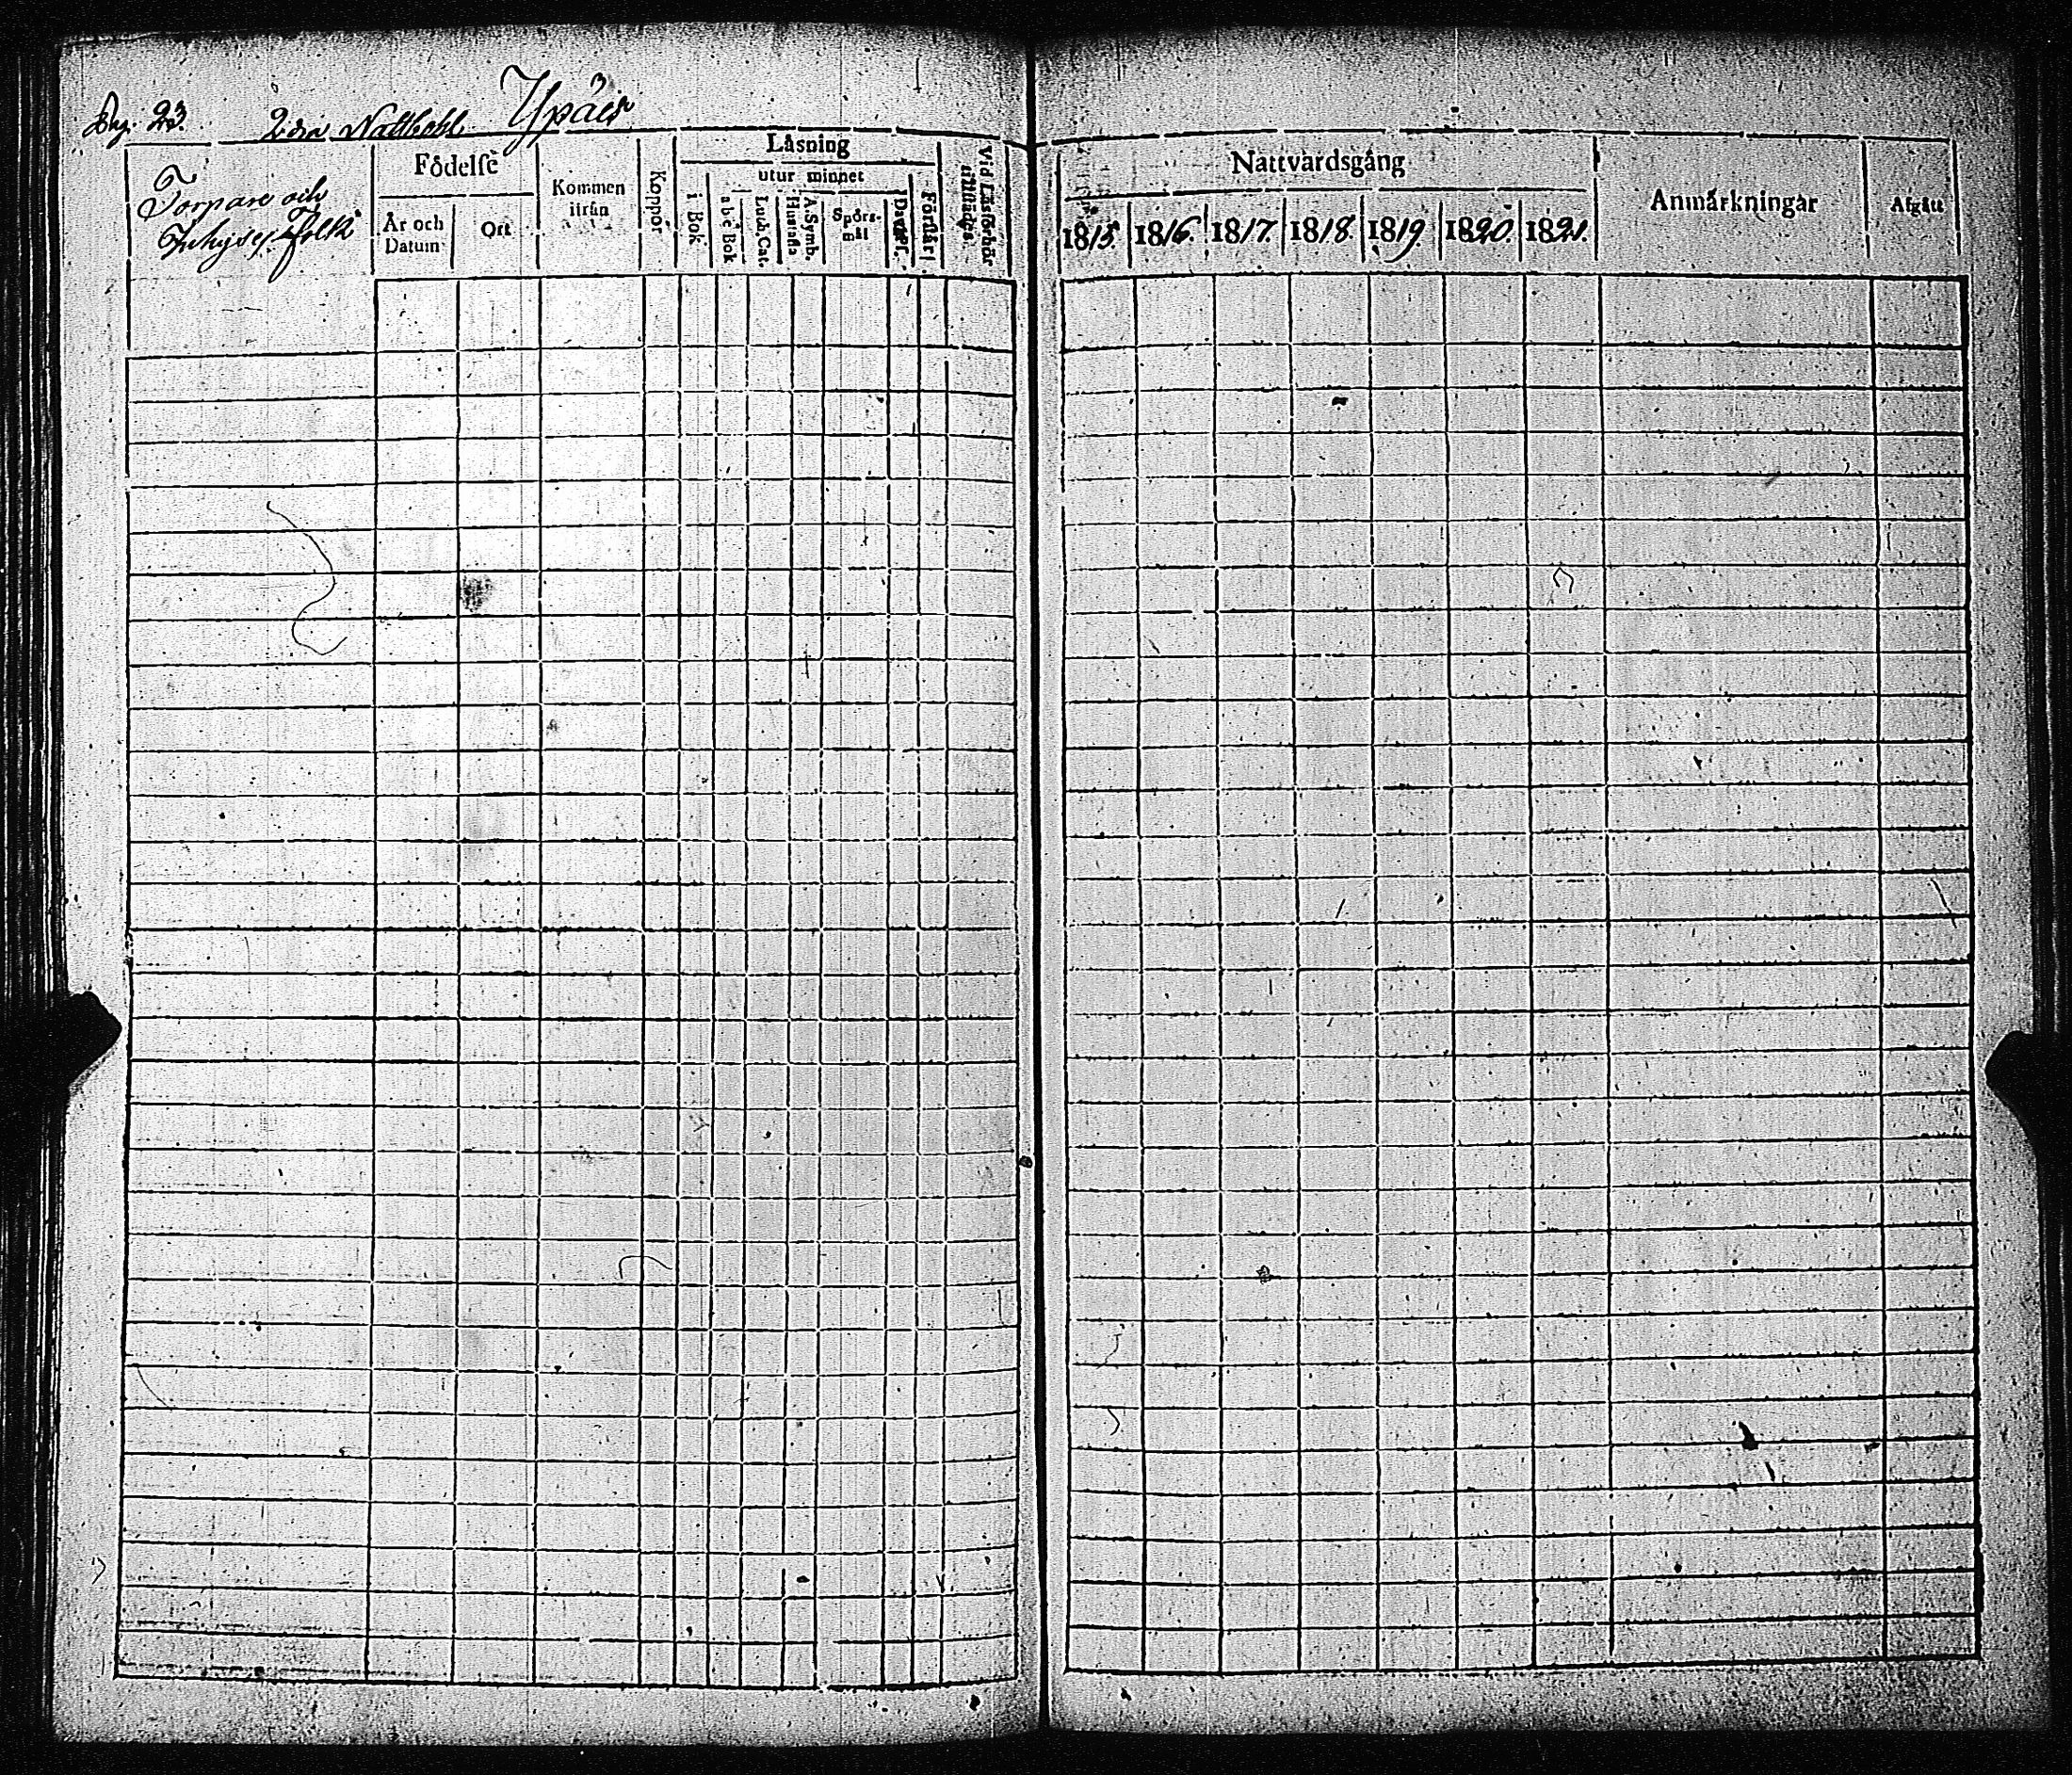 Pag. 23. 2dra Nattlaget Ypäis
Torpare och
Inhyses Folk
Födelse
År och
Datum
Ort
Kommen
ifrån
Koppor
Läsning
i Bok
utur minnet
abc Bok
Luth. Cat.
A. Symb.
Hustafla
Spörs-
mål
Dav. Ps.
Förstår
Vid Läsförhör
Nattvardsgång
1815. 1816. 1817. 1818. 1819. 1820. 1821.
Anmärkningar
Afgått